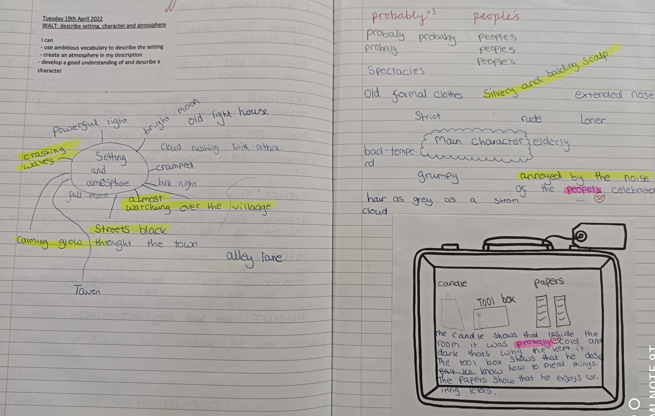 Tuesday 19th April 2022
WALT: describe setting, character and atmosphere
I can
- use ambitious vocabulary to describe the setting
- create an atmosphere in my description
- develop a good understanding of and describe a
character
powerful light
bright moon
old light house
crashing
waves
Setting
and
cloud rushing with attack
cramped
dark night
full moon
almost
watching over the village
Streets black
calming glow throught the town
alley lane
Tavern
probably x3
people's
probaly probably people's
probaly people's
people's
Spectacles
Silvery and balding scalp
Old formal clothes
extended nose
Strict
rude
Loner
Main character
elderly
bad-tempe-
rd
grumpy
annoyed by the noise
of the peopel's celebrat
hair as grey as a strom
cloud
candle
papers
Tool box
The candle shows that inside the
room it was probaly cold and
dark thats why he kept it
The tool box shows that he dose
know how to mend things.
The papers show that he enjoys wr-
iting